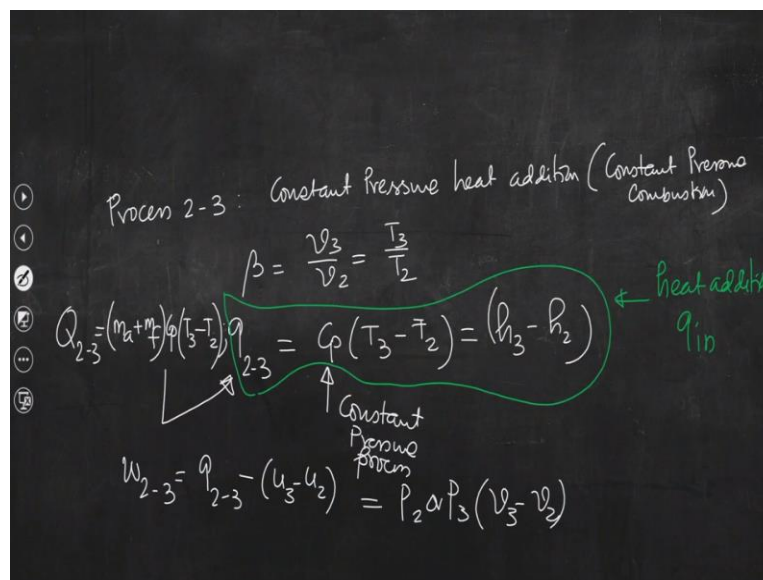 Process 2-3 : Constant Pressure heat addition (Constant Pressure Combustion)
β = v₃/v₂ = T₃/T₂
Q₂₋₃ = (mₐ + m_f) Cp (T₃ - T₂) ; q₂₋₃ = Cp (T₃ - T₂) = (h₃ - h₂)
← heat additi
q_in
Constant
Pressure
process
w₂₋₃ = q₂₋₃ - (u₃ - u₂) = P₂ or P₃ (v₃ - v₂)